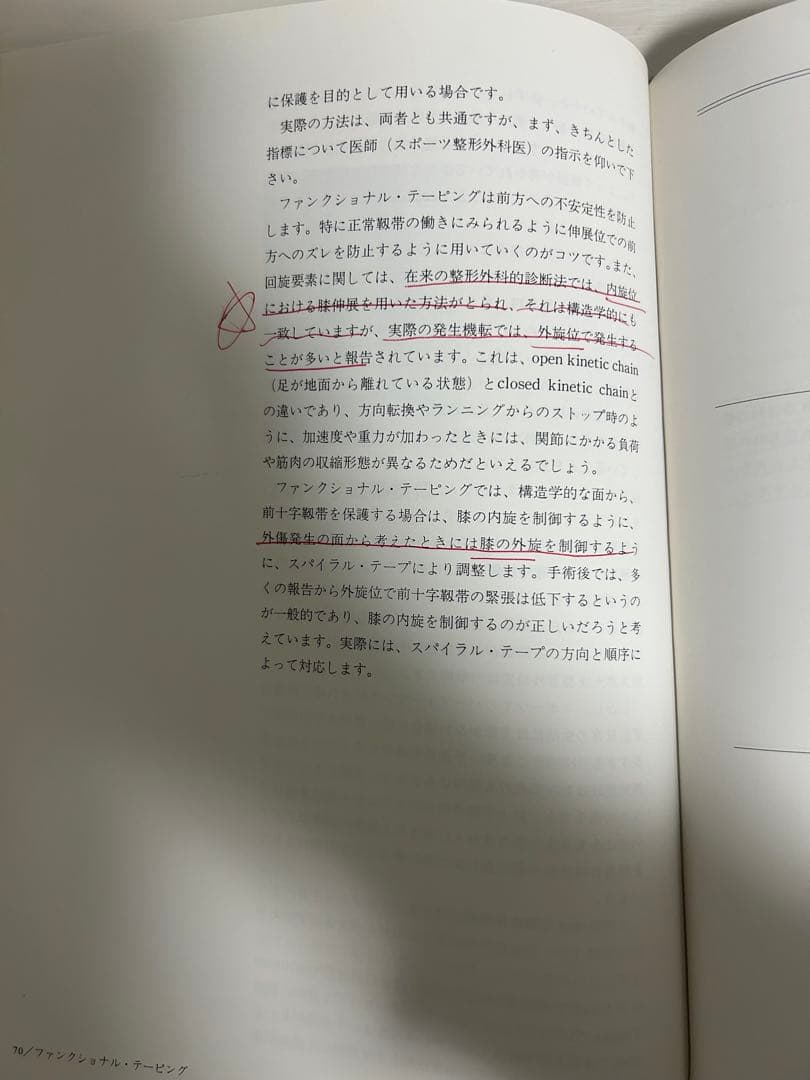 に保護を目的として用いる場合です。
実際の方法は、両者とも共通ですが、まず、きちんとした
指標について医師（スポーツ整形外科医）の指示を仰いで下
さい。
ファンクショナル・テーピングは前方への不安定性を防止
します。特に正常靱帯の働きにみられるように伸展位での前
方へのズレを防止するように用いていくのがコツです。また、
回旋要素に関しては、在来の整形外科的診断法では、内旋位
における膝伸展を用いた方法がとられ、それは構造学的にも
一致していますが、実際の発生機転では、外旋位で発生する
ことが多いと報告されています。これは、open kinetic chain
（足が地面から離れている状態）とclosed kinetic chainと
の違いであり、方向転換やランニングからのストップ時のよ
うに、加速度や重力が加わったときには、関節にかかる負荷
や筋肉の収縮形態が異なるためだといえるでしょう。
ファンクショナル・テーピングでは、構造学的な面から、
前十字靱帯を保護する場合は、膝の内旋を制御するように、
外傷発生の面から考えたときには膝の外旋を制御するよう
に、スパイラル・テープにより調整します。手術後では、多
くの報告から外旋位で前十字靱帯の緊張は低下するというの
が一般的であり、膝の内旋を制御するのが正しいだろうと考
えています。実際には、スパイラル・テープの方向と順序に
よって対応します。
70／ファンクショナル・テーピング